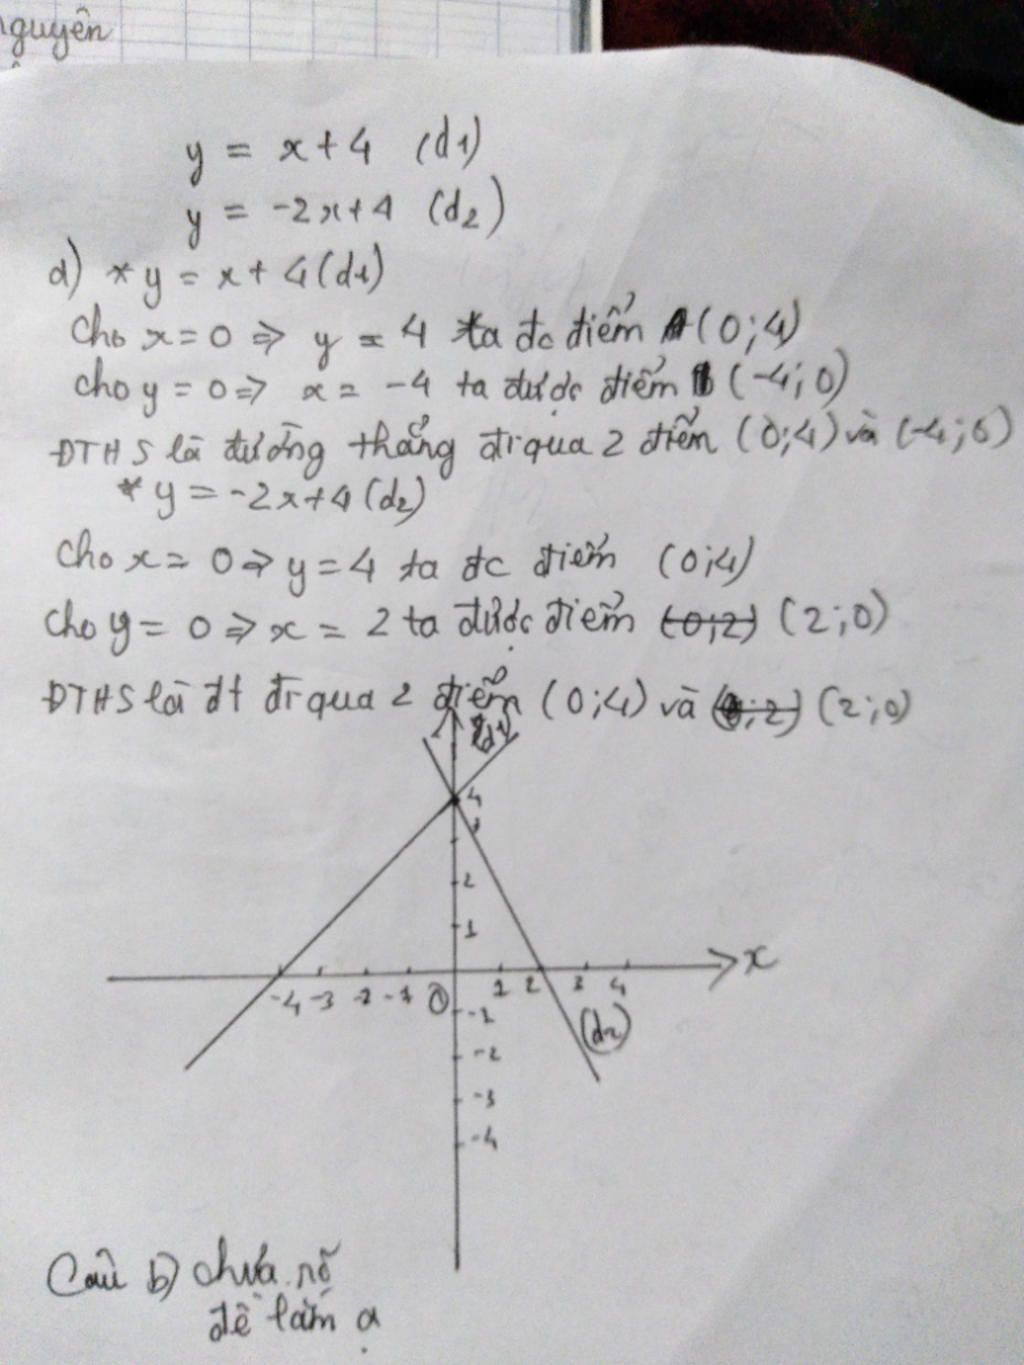 nguyên
y = x+4 (d1)
y = -2x+4 (d2)
a) * y = x+4 (d1)
Cho x=0 => y = 4 ta đc điểm A(0;4)
Cho y=0=> x= -4 ta được điểm (-4;0)
ĐTHS là đường thẳng đi qua 2 điểm (0;4) và (-4;0)
* y = -2x+4 (d2)
Cho x= 0=> y=4 ta đc điểm (0;4)
Cho y= 0=> x= 2 ta được điểm (0;2) (2;0)
ĐTHS là đt đi qua 2 điểm (0;4) và (0;2) (2;0)
(d1)
4
3
2
1
x
-4 -3 -2 -1 O 1 2 3 4
-1
(d2)
-2
-3
-4
Câu b) chưa rõ
đề lắm ạ